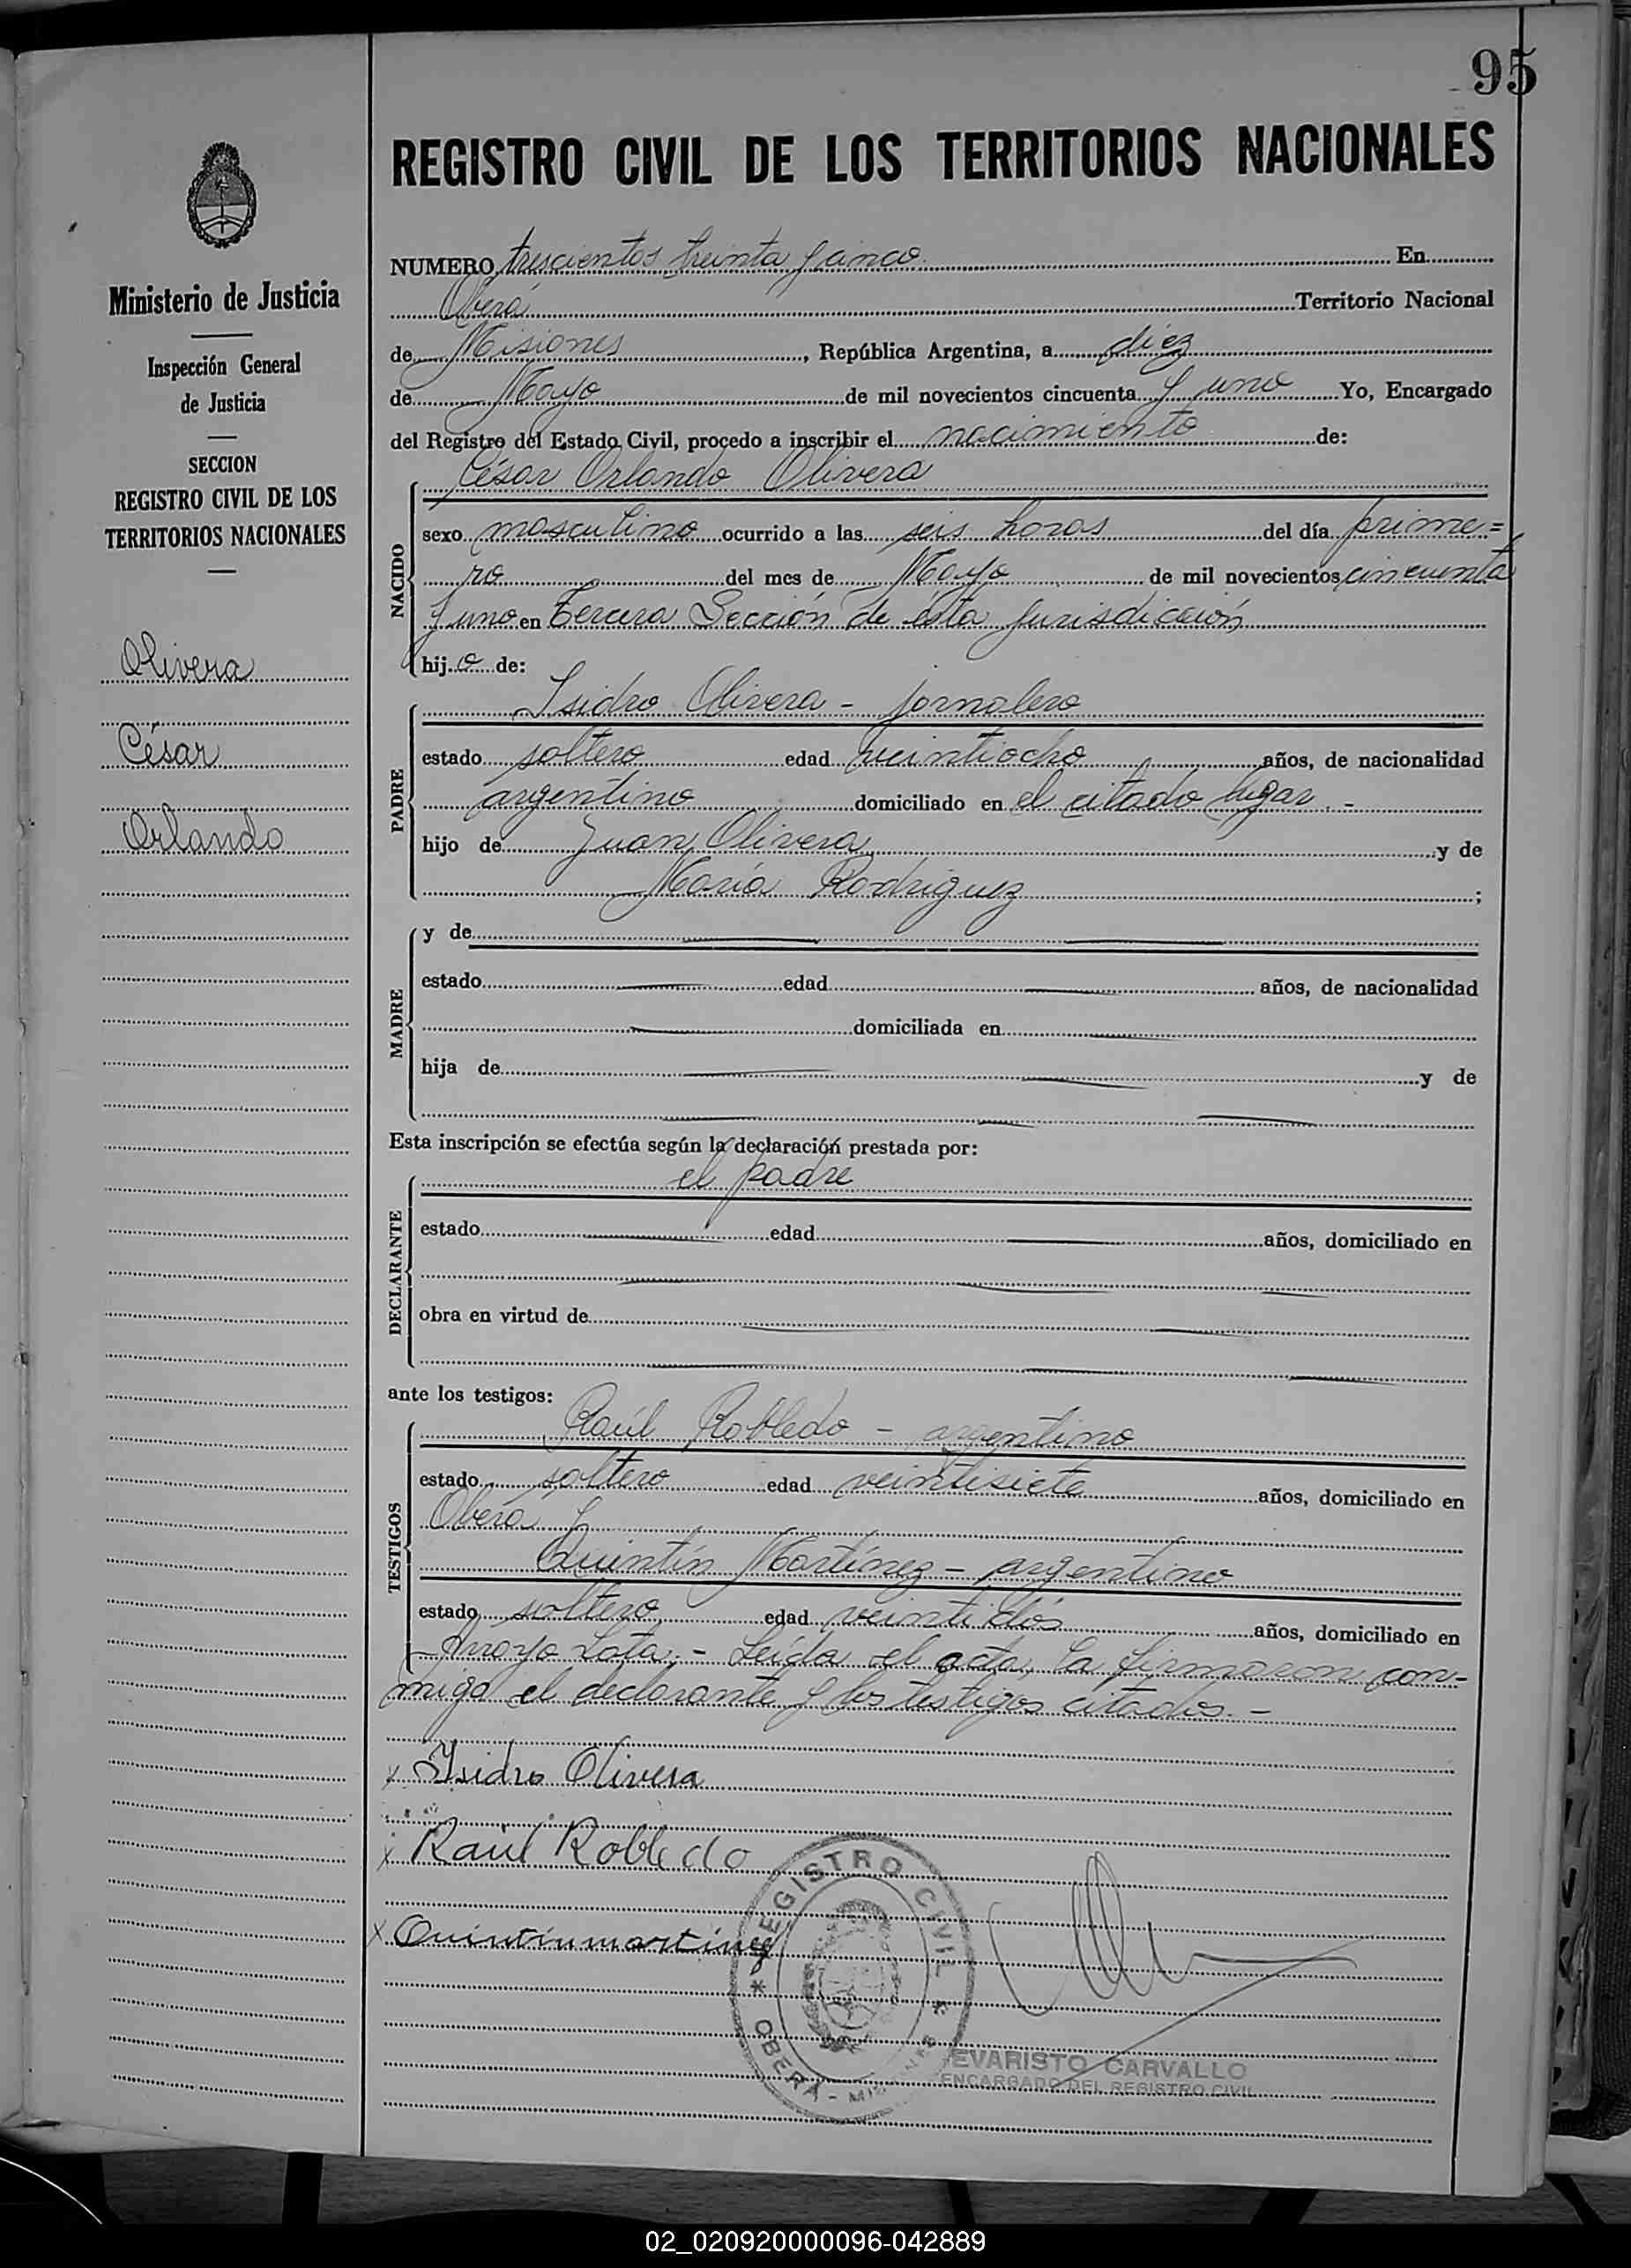 95
REGISTRO CIVIL DE LOS TERRITORIOS NACIONALES
Ministerio de Justicia
Inspección General
de Justicia
SECCION
REGISTRO CIVIL DE LOS
TERRITORIOS NACIONALES
Olivera
César
Orlando
NUMERO trescientos treinta y cinco En
Oberá Territorio Nacional
de Misiones, República Argentina, a diez
de Mayo de mil novecientos cincuenta y uno Yo, Encargado
del Registro del Estado Civil, procedo a inscribir el nacimiento de:
NACIDO
César Orlando Olivera
sexo masculino ocurrido a las seis horas del día prime=
ro del mes de Mayo de mil novecientos cincuenta
y uno en Tercera Sección de ésta jurisdicción
hijo de:
PADRE
Isidro Olivera - jornalero
estado soltero edad veintiocho años, de nacionalidad
argentino domiciliado en el citado lugar. -
hijo de Juan Olivera y de
María Rodriguez;
MADRE
y de
estado edad años, de nacionalidad
domiciliada en
hija de y de
Esta inscripción se efectúa según la declaración prestada por:
DECLARANTE
el padre
estado edad años, domiciliado en
obra en virtud de
ante los testigos:
TESTIGOS
Raúl Robledo - argentino
estado soltero edad veintisiete años, domiciliado en
Oberá y
Quintín Martínez - argentino
estado soltero edad veintidós años, domiciliado en
Arroyo - Leída el acta, la firmaron con-
migo el declarante y los testigos citados. -
x Isidro Olivera
x Raúl Robledo
x Quintín martínez
REGISTRO CIVIL
* OBERÁ - MISIONES *
EVARISTO CARVALLO
ENCARGADO DEL REGISTRO CIVIL
02_020920000096-042889